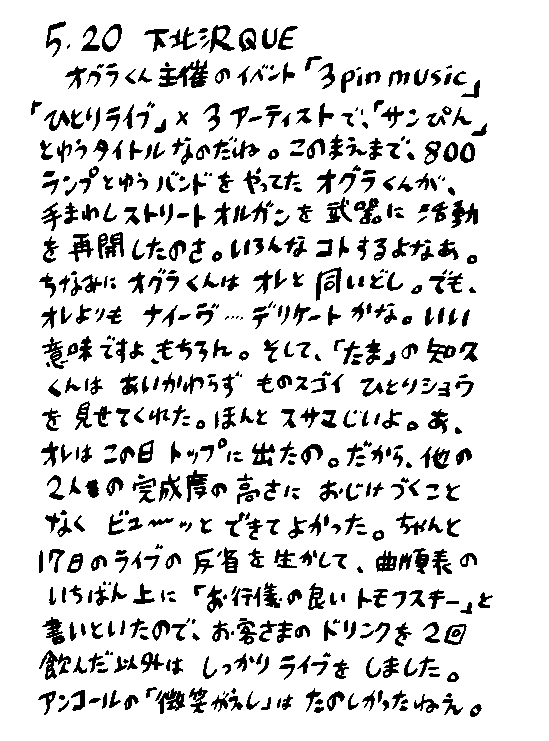 5.20 下北沢QUE
オグラくん主催のイベント「3pin music」
「ひとりライブ」×3アーティストで、「サンぴん」
とゆうタイトルなのだね。このまえまで、800
ランプとゆうバンドをやってたオグラくんが、
手まわしストリートオルガンを武器に活動
を再開したのさ。いろんなコトするよなあ。
ちなみにオグラくんはオレと同いどし。でも、
オレよりもナイーヴ…デリケートかな。いい
意味ですよ、もちろん。そして、「たま」の知久
くんはあいかわらずものスゴイひとりショウ
を見せてくれた。ほんとスサマじいよ。あ、
オレはこの日トップに出たの。だから、他の
2人の完成度の高さにおじけづくこと
なくビューーッとできてよかった。ちゃんと
17日のライブの反省を生かして、曲順表の
いちばん上に「お行儀の良いトモフスキー」と
書いといたので、お客さまのドリンクを2回
飲んだ以外はしっかりライブをしました。
アンコールの「微笑がえし」はたのしかったねえ。